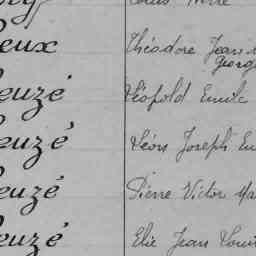 eux Théodore Jean
Georg
euzé Léopold Emile
euzé Léon Joseph Em
euzé Pierre Victor Ma
euzé Elie Jean Loui